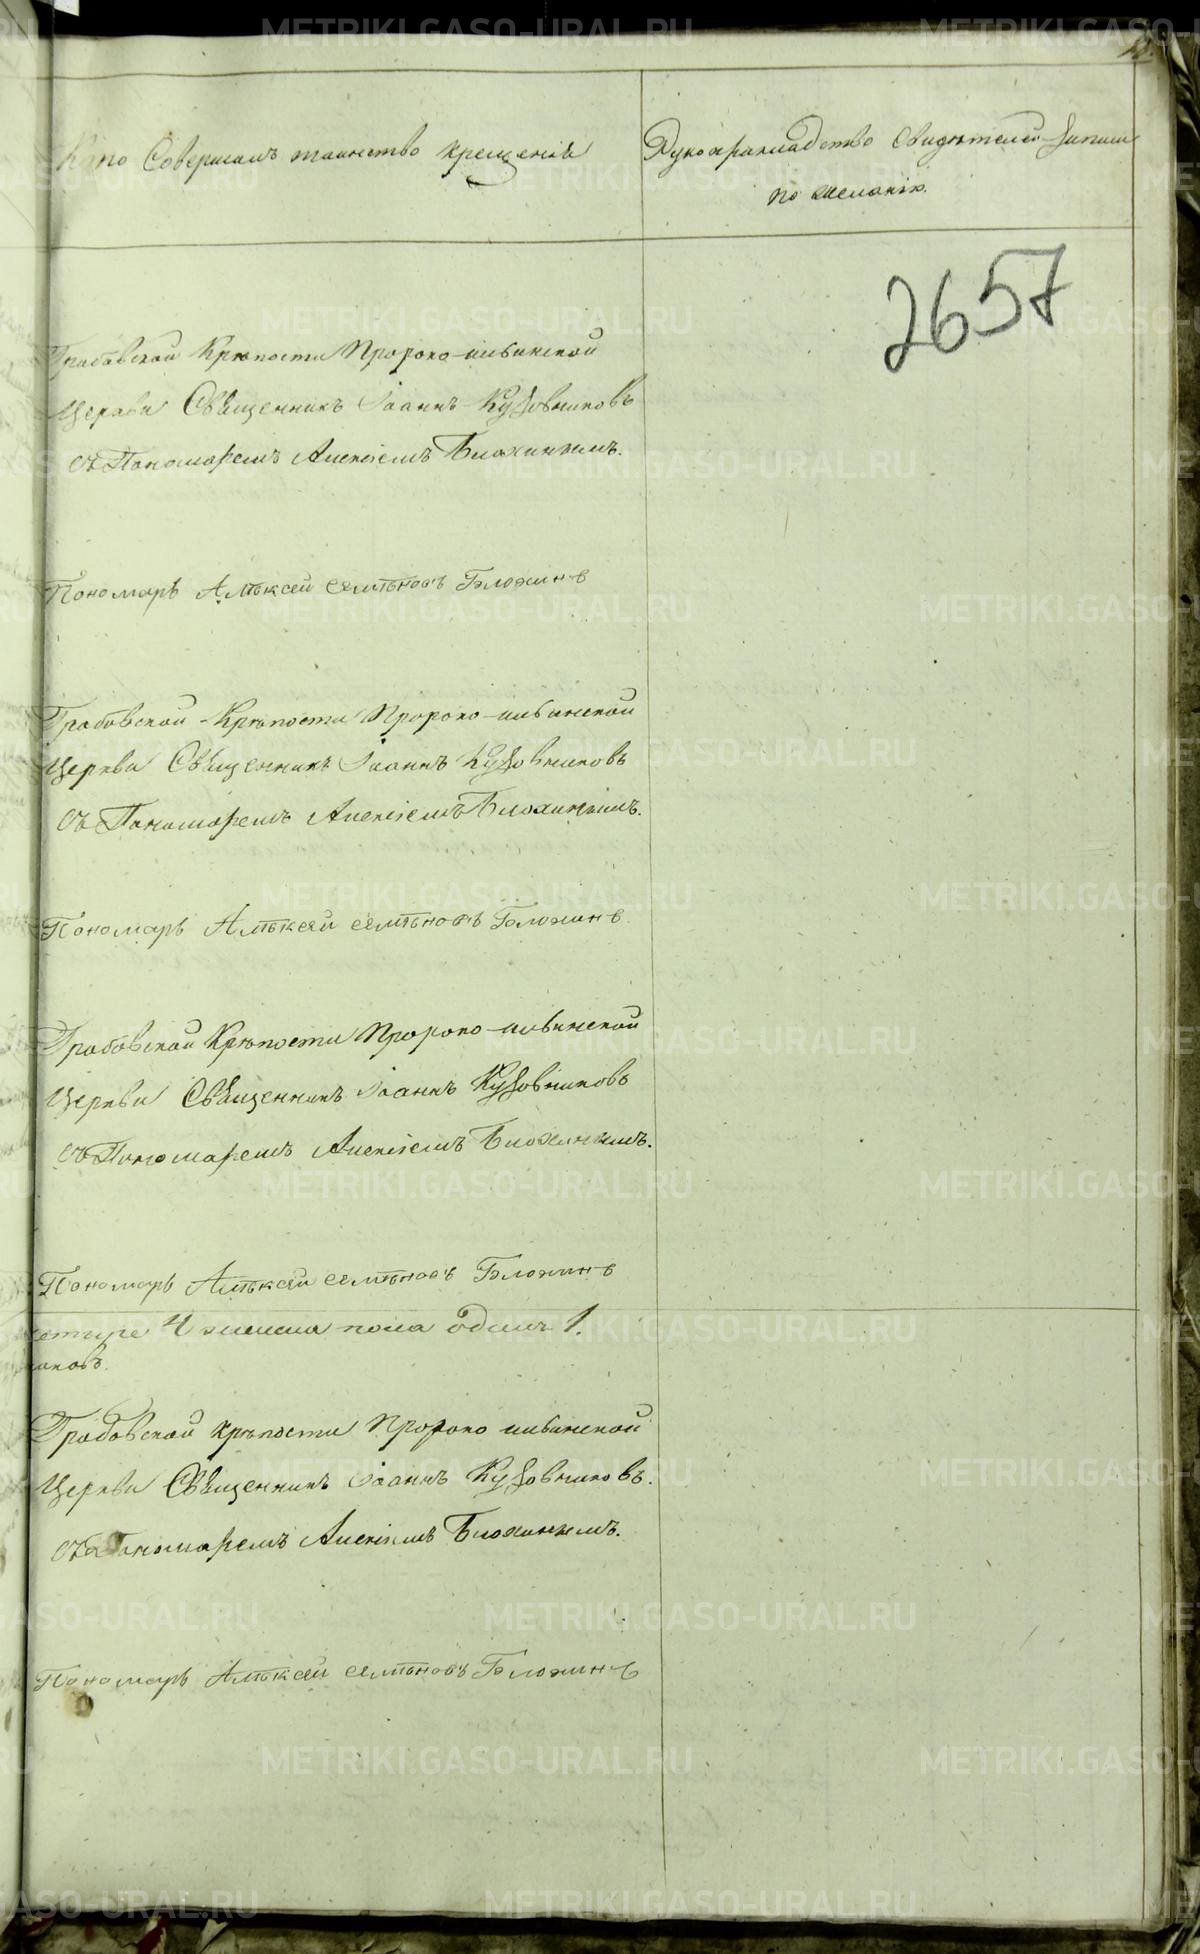 Кто Совершалъ таинство крещенія
Рукоприкладство Свидѣтелей записи
по желанію.
2657
Грабовской Крѣпости Пророко-ильинской
Церкви Священникъ Іоаннъ Кузовниковъ
съ Пономаремъ Алексіемъ Блохинымъ.
Пономарь Алѣксей семѣновъ Блохинъ
Грабовской Крѣпости Пророко-ильинской
Церкви Священникъ Іоаннъ Кузовниковъ
съ Пономаремъ Алексіемъ Блохинымъ.
Пономарь Алѣксей семѣновъ Блохинъ
Грабовской Крѣпости Пророко-ильинской
Церкви Священникъ Іоаннъ Кузовниковъ
съ Пономаремъ Алексіемъ Блохинымъ.
Пономарь Алѣксей семѣновъ Блохинъ
четыре 4 женска пола одинъ 1.
Грабовской крѣпости Пророко ильинской
Церкви Священникъ Іоаннъ Кузовниковъ.
съ Пономаремъ Алексіемъ Блохинымъ.
Пономарь Алѣксей семѣновъ Блохинъ
METRIKI.GASO-URAL.RU